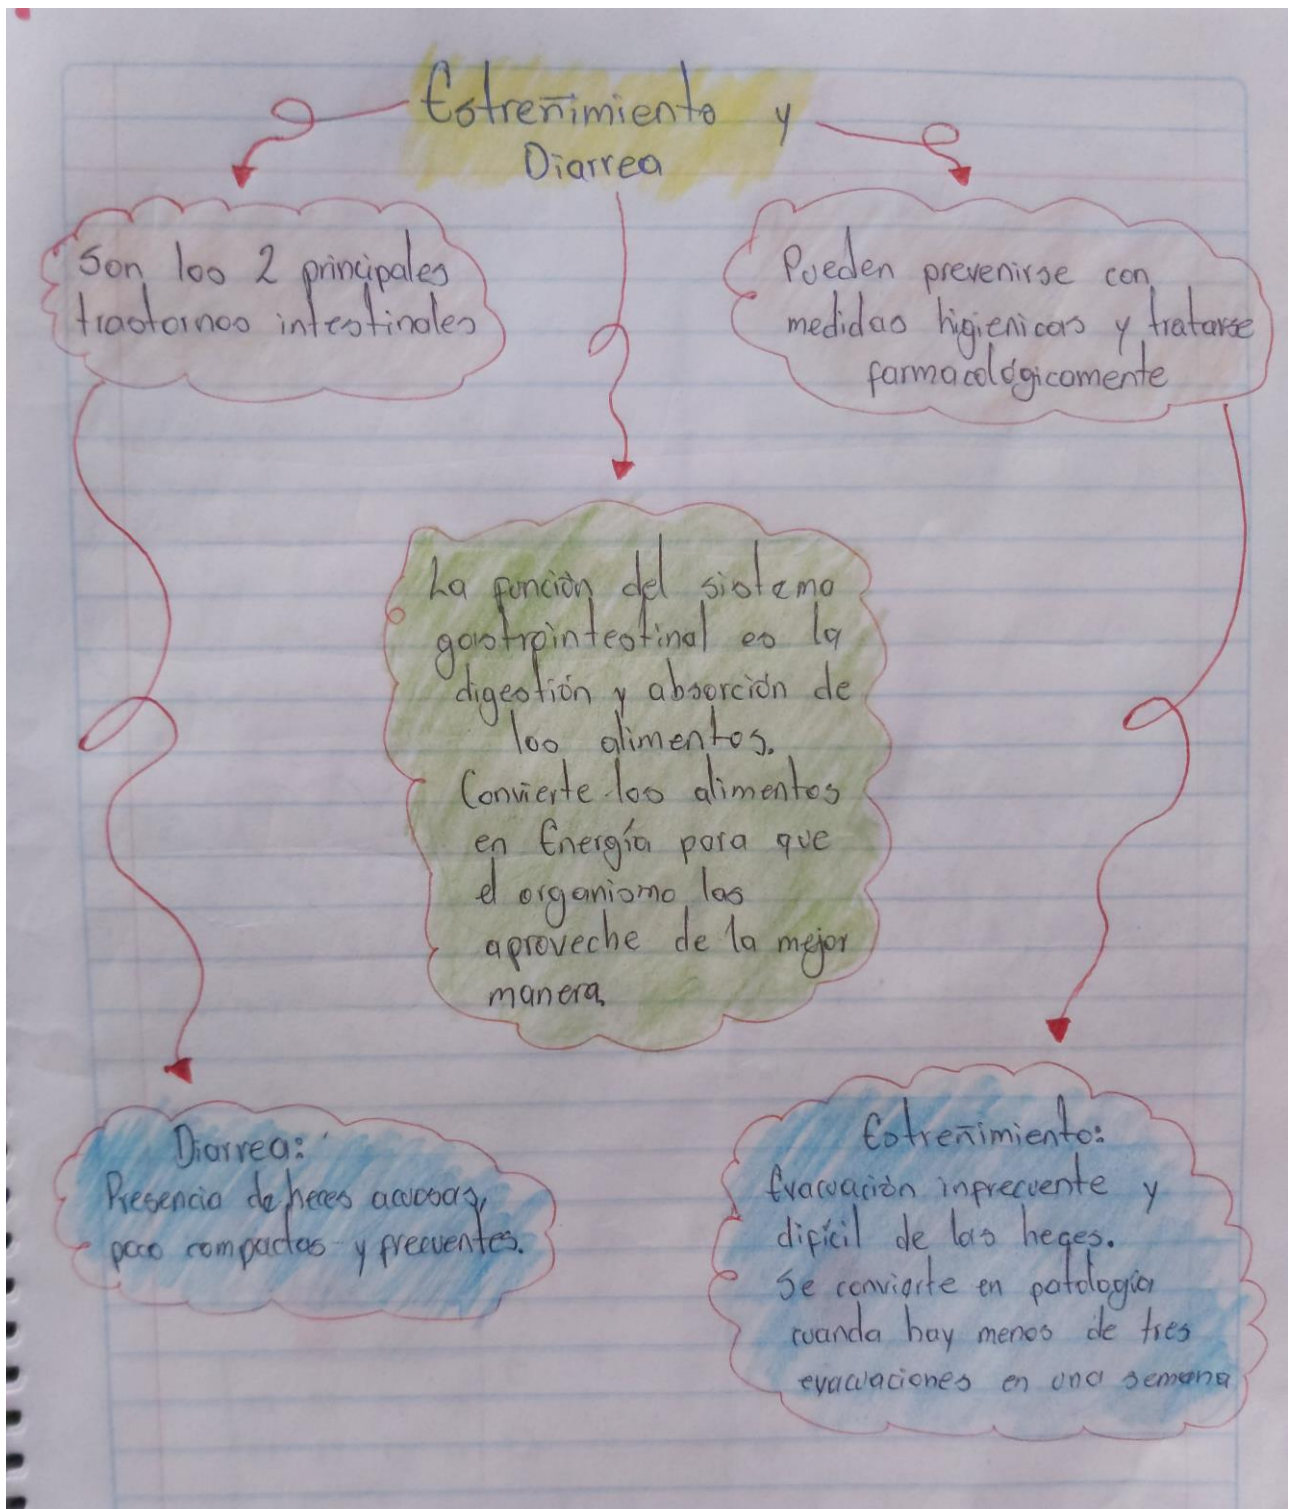 Estreñimiento y
Diarrea
Son los 2 principales
trastornos intestinales
Pueden prevenirse con
medidas higienicas y tratarse
farmacológicamente
La función del sistema
gastrointestinal es la
digestión y absorción de
los alimentos.
Convierte los alimentos
en Energía para que
el organismo las
aproveche de la mejor
manera.
Diarrea:
Presencia de heces acuosas,
poco compactas y frecuentes.
Estreñimiento:
Evacuación infrecuente y
difícil de las heces.
Se convierte en patología
cuando hay menos de tres
evacuaciones en una semana